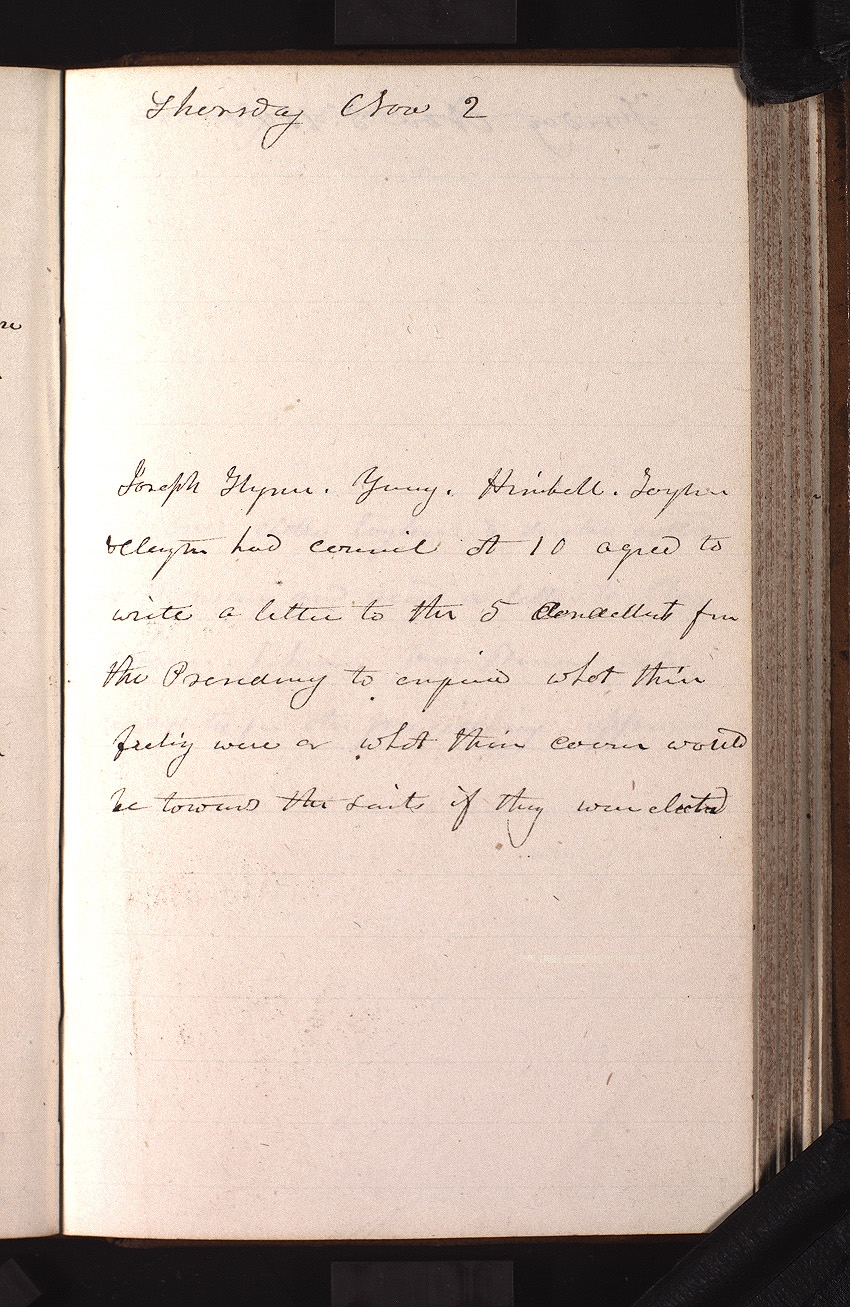 Thersday Nov 2
Joseph Hyrum. Young. Kimball. Taylor
& Clayton had council at 10 agreed to
write a letter to the 5 Candidats for
the Presidency to enquire what their
feelig were or what their course would
be towards the saints if they were elected